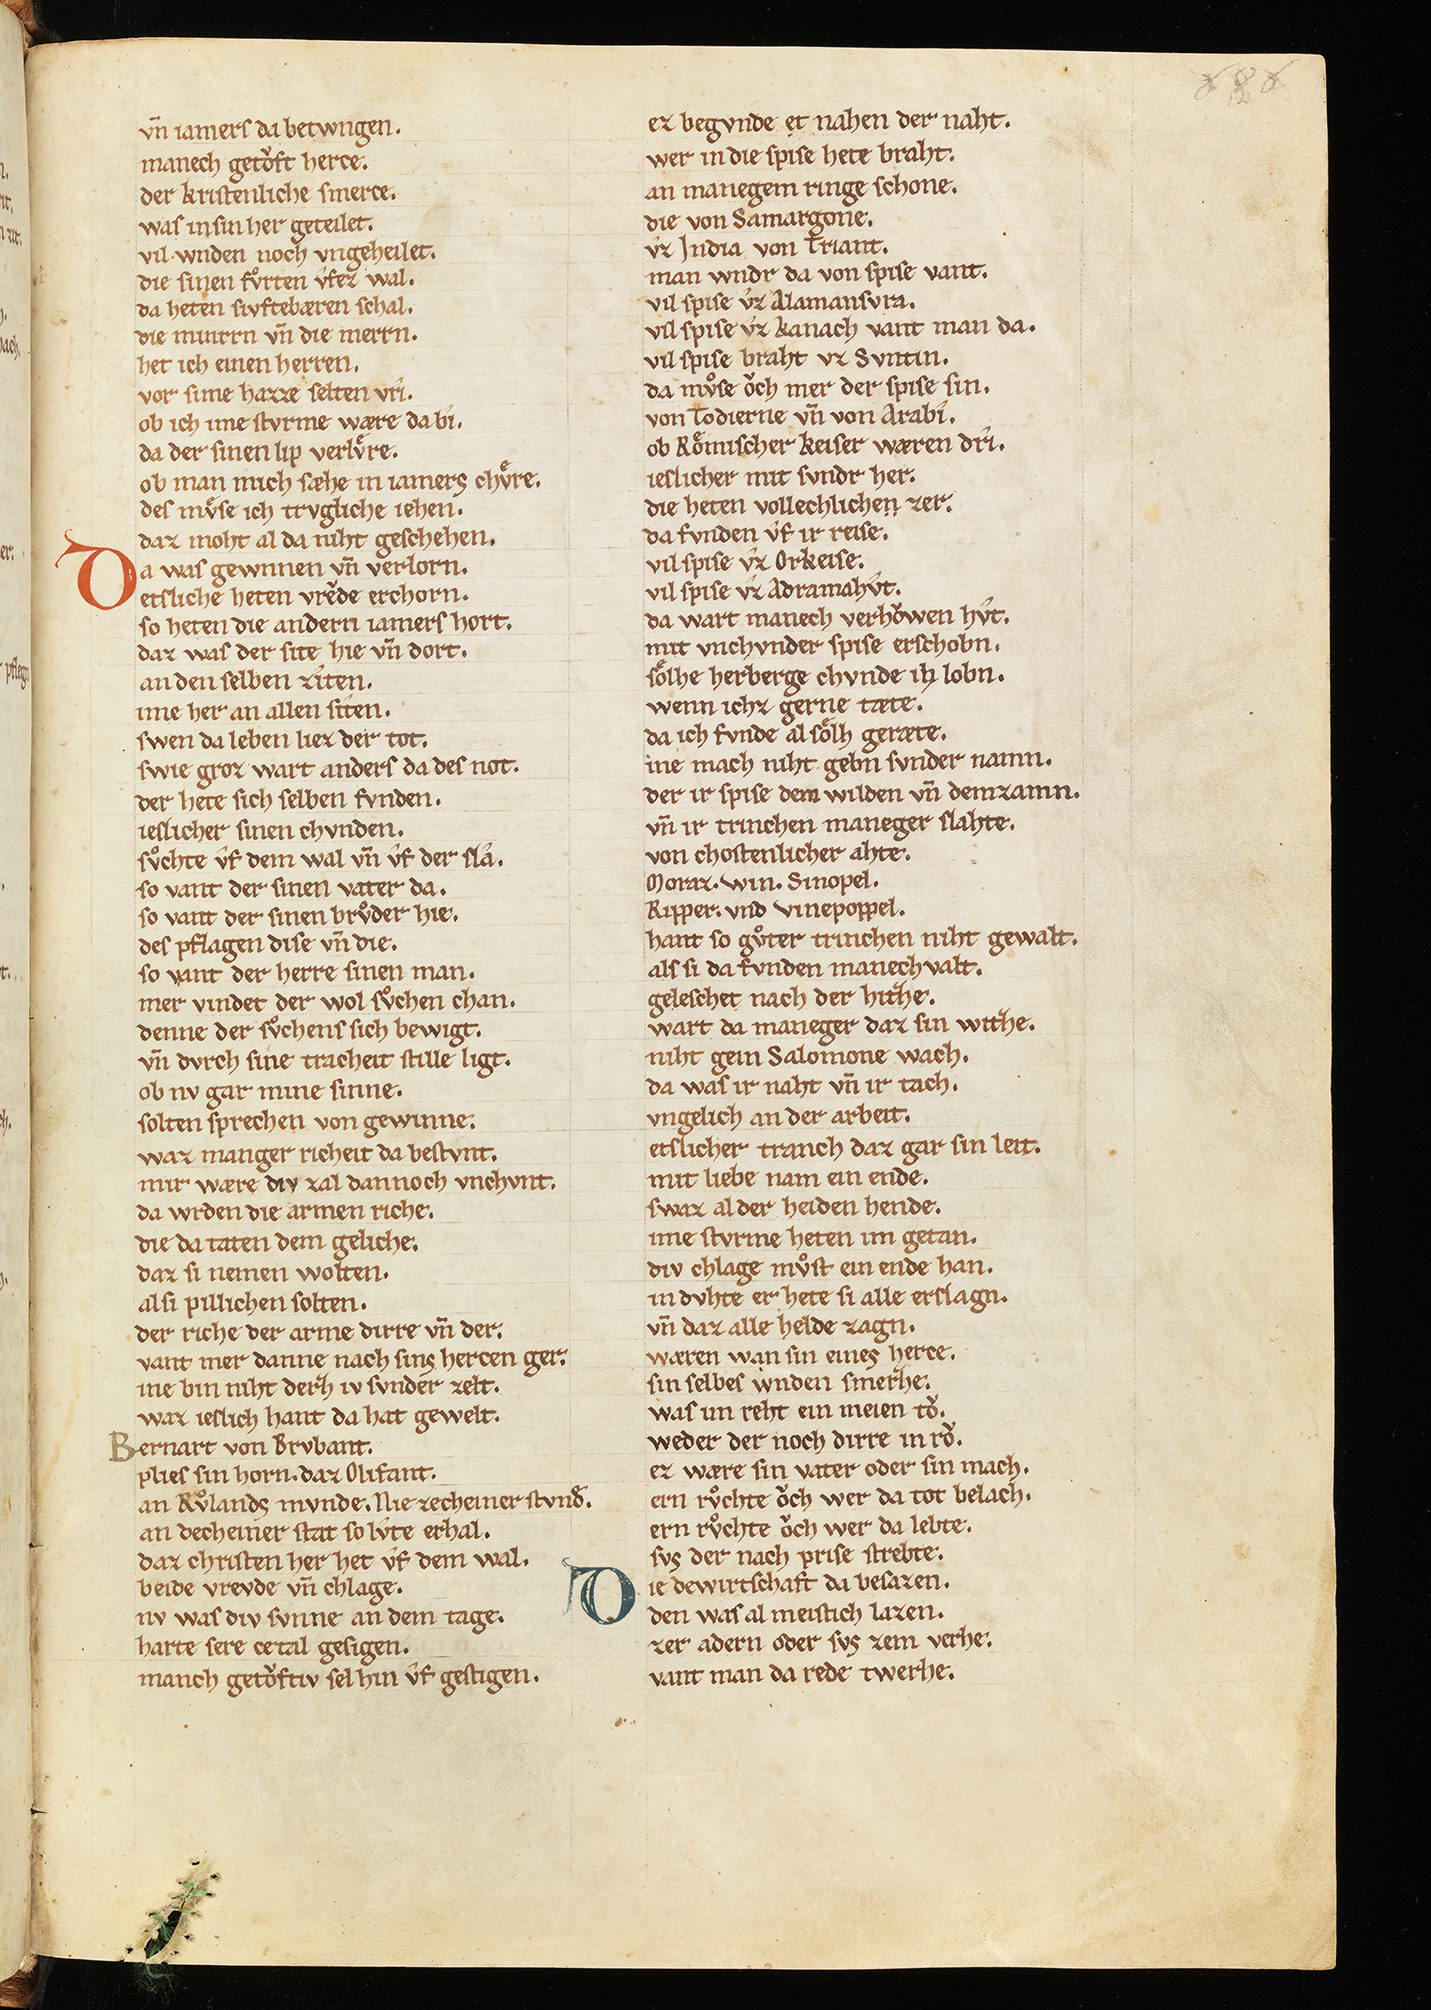 vn̄ iamers da betwngen.
manech getǒft herce.
der kristenliche smerce.
was in sin her geteilet.
vil wnden noch vngeheilet.
die sinen fv̊rten v́fez wal.
da heten sivftebæren schal.
die minrrn vn̄ die merrn.
het ich einen herren.
vor sime hazze selten vrí.
ob ich ime stvrme wære da bí.
da der sinen lip verlv̊re.
ob man mich sæhe in iamers chv̊re.
des mv̊se ich trvgliche iehen.
daz moht al da niht geschehen.
Da was gewnnen vn̄ verlorn.
etsliche heten vrev̄de erchorn.
so heten die andern iamers hort.
daz was der site hie vn̄ dort.
an den selben zíten.
ime her an allen síten.
swen da leben liez der tot.
swie groz wart anders da des not.
der hete sich selben fvnden.
ieslicher sinen chvnden.
sv̊chte v́f dem wal vn̄ v́f der slá.
so vant der sinen vater da.
so vant der sinen brv̊der hie.
des pflagen dise vn̄ die.
so vant der herre sinen man.
mer vindet der wol sv̊chen chan.
denne der sv̊chens sich bewigt.
vn̄ dvrch sine tracheit stille ligt.
ob nv gar mine sinne.
solten sprechen von gewinne.
waz manger richeit da bestvnt.
mir wære div zal dannoch vnchvnt.
da wrden die armen riche.
die da taten dem geliche.
daz si nemen wolten.
al si pillichen solten.
der riche der arme dirre vn̄ der.
vant mer danne nach sins hercen ger.
ine bin niht derh iv svnder zelt.
waz ieslich hant da hat gewelt.
Bernart von Brvbant.
plies sin horn. daz Olifant.
an Rv̊lands mvnde. Nie zecheiner stvnd̄.
an decheiner stat so lv́te erhal.
daz christen her het v́f dem wal.
beide vrevde vn̄ chlage.
nv was div svnne an dem tage.
harte sere cetal gesigen.
manch getǒftiv sel hin v́f gestigen.
ez begvnde et nahen der naht.
wer in die spise hete braht.
an manegem ringe schone.
die von Samargone.
v́z India von Triant.
man wndr da von spise vant.
vil spise v́z Alamansvra.
vil spise v́z kanach vant man da.
vil spise braht vz Svntin.
da mv̊se ǒch mer der spise sin.
von Todierne vn̄ von Arabí.
ob Rômischer keiser wæren drí.
ieslicher mit svndr her.
die heten vollechlichen zer.
da fvnden v́f ir reise.
vil spise v́z Orkeise.
vil spise v́z Adramahv́t.
da wart manech verhǒwen hv́t.
mit vnchvnder spise erschobn.
sôlhe herberge chvnde ih lobn.
wenn ichz gerne tæte.
da ich fvnde al sôlh geræte.
ine mach niht gebn svnder namn.
der ir spise dem wilden vn̄ dem zamn.
vn̄ ir trinchen maneger slahte.
von chostenlicher ahte.
Moraz. win. Sinopel.
Kipper. vnd vinepoppel.
hant so gv̊ter trinchen niht gewalt.
als si da fvnden manech valt.
geleschet nach der hithe.
wart da maneger daz sin withe.
niht gein Salomone wach.
da was ir naht vn̄ ir tach.
vngelich an der arbeit.
etslicher tranch daz gar sin leit.
mit liebe nam ein ende.
swaz al der heiden hende.
ime stvrme heten im getan.
div chlage mv̊st ein ende han.
in dvhte er hete si alle erslagn.
vn̄ daz alle helde zagn.
wæren wan sin eines herce.
sin selbes wnden smerhe.
was im reht ein meien tǒ.
weder der noch dirre in rǒ.
ez wære sin vater oder sin mach.
ern rv̊chte ǒch wer da tot belach.
ern rv̊chte ǒch wer da lebte.
svs der nach prise strebte.
Die dewirtschaft da besazen.
den was al meistich lazen.
zer adern oder svs zem verhe.
vant man da rede twerhe.